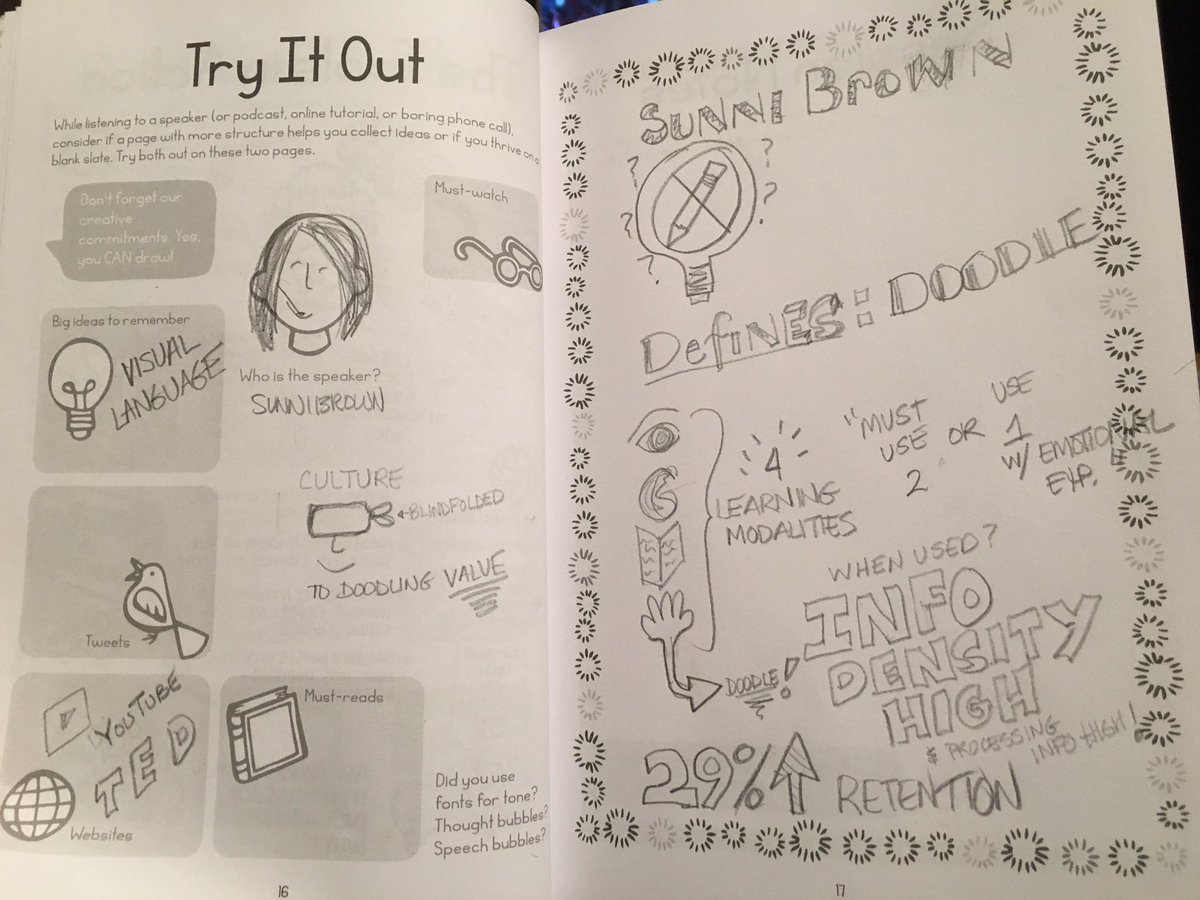 Try It Out
While listening to a speaker (or podcast, online tutorial, or boring phone call),
consider if a page with more structure helps you collect ideas or if you thrive on a
blank slate. Try both out on these two pages.
Don't forget our
creative
commitments. Yes,
you CAN draw!
Must-watch
Big ideas to remember
VISUAL
LANGUAGE
Who is the speaker?
SUNNI BROWN
CULTURE
BLINDFOLDED
TO DOODLING VALUE
Tweets
YOUTUBE
TED
Websites
Must-reads
Did you use
fonts for tone?
Thought bubbles?
Speech bubbles?
16
SUNNI BROWN
? ? ? ? ? ?
DefiNES: DOODLE
4
LEARNING
MODALITIES
"MUST
USE
2
OR
USE
1
W/ EMOTIONAL
EXP.
DOODLE!
WHEN USED?
INFO
DENSITY
HIGH
& PROCESSING
INFO HIGH!
29% RETENTION
17